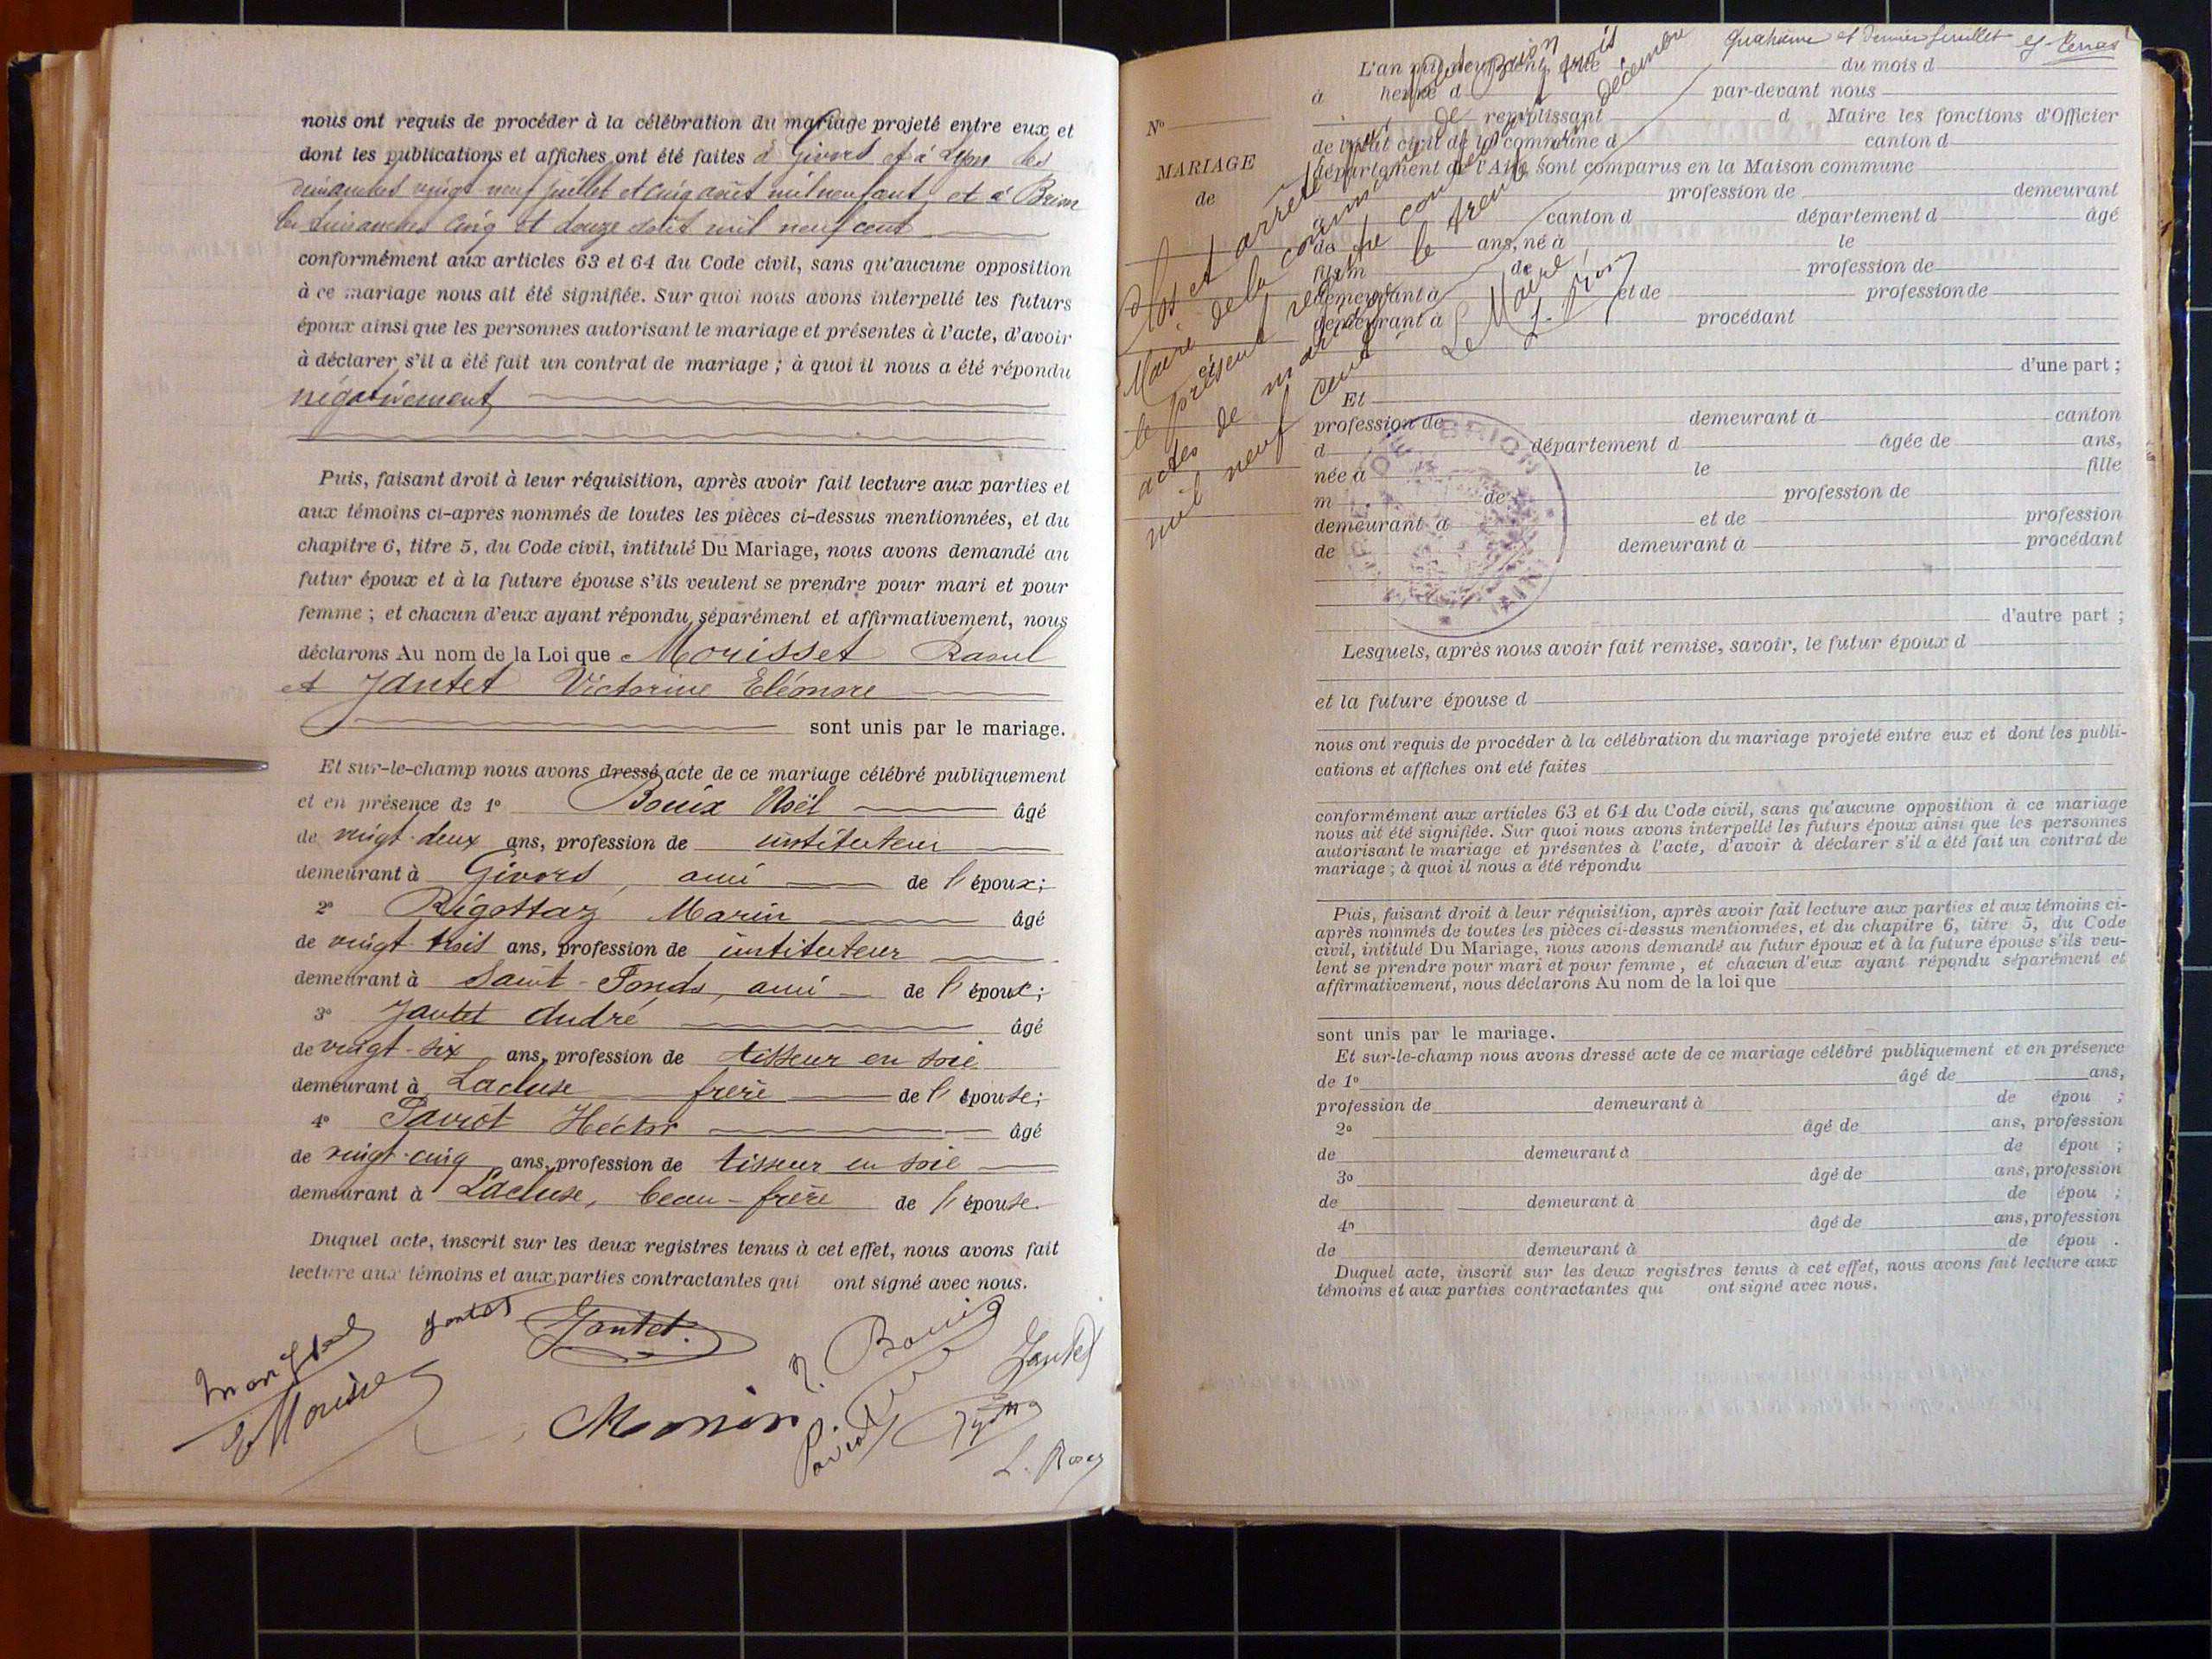 nous ont requis de procéder à la célébration du mariage projeté entre eux et
dont les publications et affiches ont été faites à Givors et à Lyon les
dimanches vingt neuf juillet et cinq août mil neuf cent, et à Brion
les dimanches cinq et douze août mil neuf cent
conformément aux articles 63 et 64 du Code civil, sans qu'aucune opposition
à ce mariage nous ait été signifiée. Sur quoi nous avons interpellé les futurs
époux ainsi que les personnes autorisant le mariage et présentes à l'acte, d'avoir
à déclarer s'il a été fait un contrat de mariage ; à quoi il nous a été répondu
négativement
Puis, faisant droit à leur réquisition, après avoir fait lecture aux parties et
aux témoins ci-après nommés de toutes les pièces ci-dessus mentionnées, et du
chapitre 6, titre 5, du Code civil, intitulé Du Mariage, nous avons demandé au
futur époux et à la future épouse s'ils veulent se prendre pour mari et pour
femme ; et chacun d'eux ayant répondu séparément et affirmativement, nous
déclarons Au nom de la Loi que Morisset Raoul
et Jantet Victorine Eléonore
sont unis par le mariage.
Et sur-le-champ nous avons dressé acte de ce mariage célébré publiquement
et en présence de 1º Bouix Noël âgé
de vingt-deux ans, profession de instituteur
demeurant à Givors, ami de l'époux ;
2º Rigottaz Marin âgé
de vingt trois ans, profession de instituteur
demeurant à Saint-Fonds, ami de l'époux ;
3º Jantet André âgé
de vingt-six ans, profession de tisseur en soie
demeurant à Lacluse frère de l'épouse ;
4º Pavrot Héctor âgé
de vingt-cinq ans, profession de tisseur en soie
demeurant à Lacluse, beau-frère de l'épouse.
Duquel acte, inscrit sur les deux registres tenus à cet effet, nous avons fait
lecture aux témoins et aux parties contractantes qui ont signé avec nous.
Jantet Jantet. Jantet
Monin
Quatrième et dernier feuillet
L'an mil neuf cent du mois d
à heure d par-devant nous
remplissant d Maire les fonctions d'Officier
de l'état civil de la commune d canton d
département de l'Ain sont comparus en la Maison commune
profession de demeurant
à canton d département d âgé
de ans, né à le
fils m de profession de
demeurant à et de profession de
demeurant à procédant
d'une part ;
Nº
MARIAGE
de
Clos et arrêté par nous
Maire de la commune de Brion
le présent registre contenant trois
actes de mariage le trente un décembre
mil neuf cent
Le Maire
Et
profession de demeurant à canton
d département d âgée de ans,
née à le fille
m de profession de
demeurant à et de profession
de demeurant à procédant
BRION
d'autre part ;
Lesquels, après nous avoir fait remise, savoir, le futur époux d
et la future épouse d
nous ont requis de procéder à la célébration du mariage projeté entre eux et dont les publi-
cations et affiches ont été faites
conformément aux articles 63 et 64 du Code civil, sans qu'aucune opposition à ce mariage
nous ait été signifiée. Sur quoi nous avons interpellé les futurs époux ainsi que les personnes
autorisant le mariage et présentes à l'acte, d'avoir à déclarer s'il a été fait un contrat de
mariage ; à quoi il nous a été répondu
Puis, faisant droit à leur réquisition, après avoir fait lecture aux parties et aux témoins ci-
après nommés de toutes les pièces ci-dessus mentionnées, et du chapitre 6, titre 5, du Code
civil, intitulé Du Mariage, nous avons demandé au futur époux et à la future épouse s'ils veu-
lent se prendre pour mari et pour femme, et chacun d'eux ayant répondu séparément et
affirmativement, nous déclarons Au nom de la loi que
sont unis par le mariage.
Et sur-le-champ nous avons dressé acte de ce mariage célébré publiquement et en présence
de 1º âgé de ans,
profession de demeurant à de épou ;
2º âgé de ans, profession
de demeurant à de épou ;
3º âgé de ans, profession
de demeurant à de épou ;
4º âgé de ans, profession
de demeurant à de épou .
Duquel acte, inscrit sur les deux registres tenus à cet effet, nous avons fait lecture aux
témoins et aux parties contractantes qui ont signé avec nous.